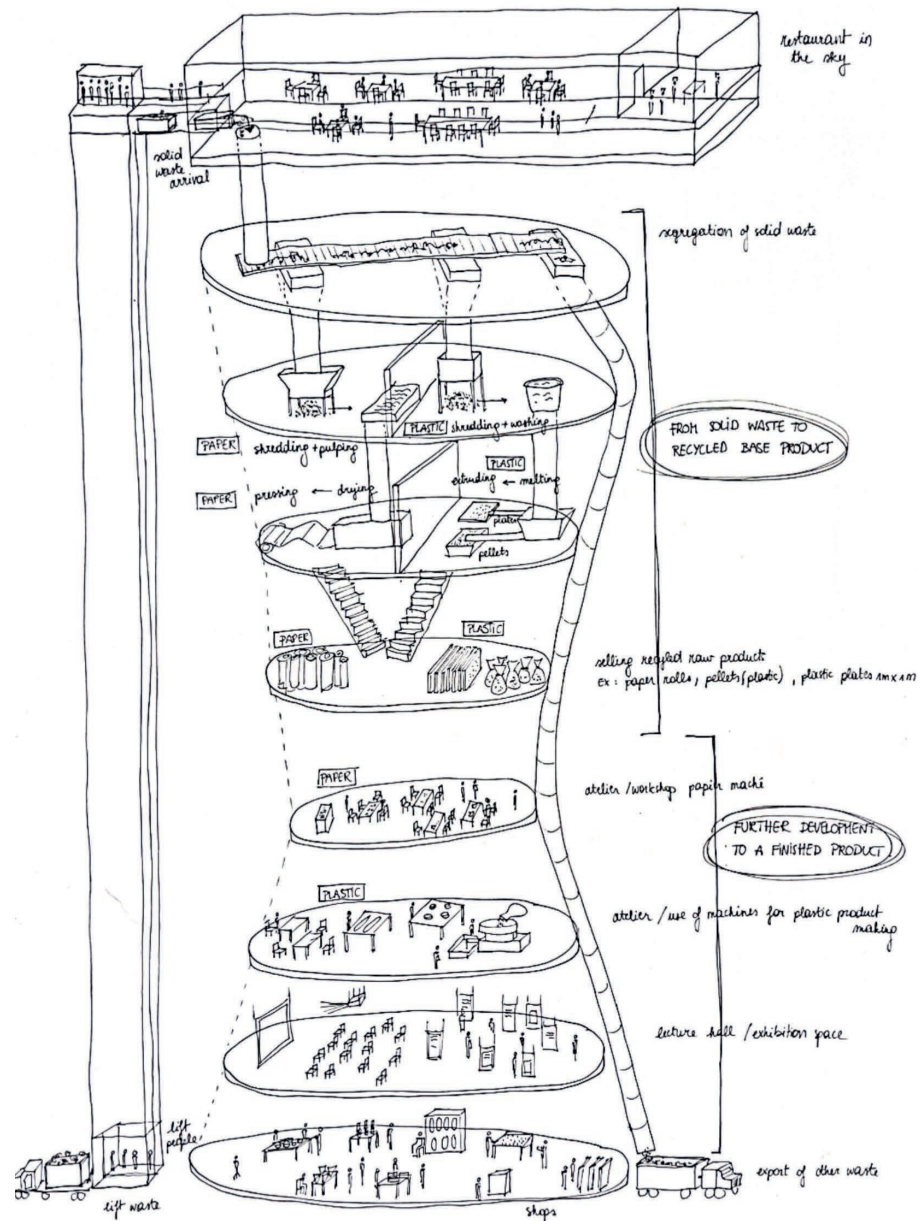 restaurant in
the sky
solid
waste
arrival
segregation of solid waste
PLASTIC shredding + washing
PAPER shredding + pulping
FROM SOLID WASTE TO
RECYCLED BASE PRODUCT
PLASTIC
extruding ← melting
PAPER pressing ← drying
plates
pellets
PAPER
PLASTIC
selling recycled raw products
ex: paper rolls, pellets (plastic), plastic plates 1m x 1m
PAPER
atelier / workshop papier maché
FURTHER DEVELOPMENT
TO A FINISHED PRODUCT
PLASTIC
atelier / use of machines for plastic product
making
lecture hall / exhibition space
lift
people
lift waste
shops
export of other waste